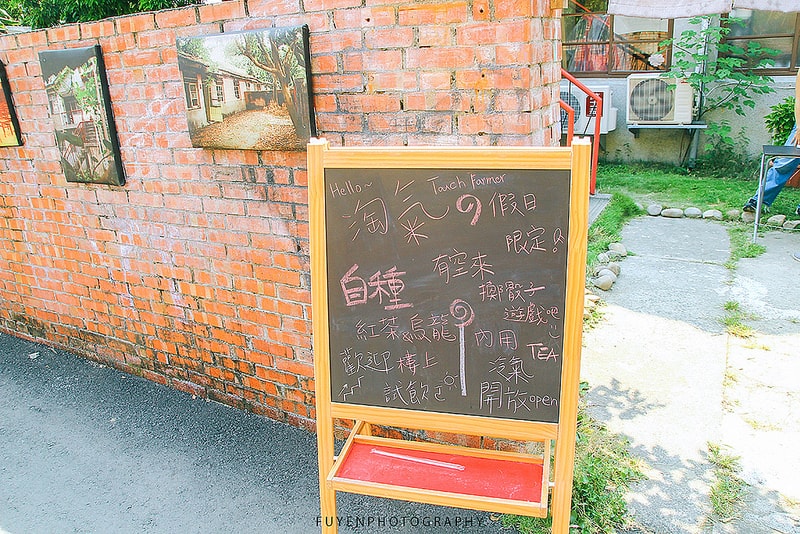 Hello~ Touch Farmer
淘氣の假日
限定!
有空來
自種
擲骰子
遊戲吧
紅茶&烏龍
內用
TEA
歡迎樓上
冷氣
試飲
開放open
FUYENPHOTOGRAPHY